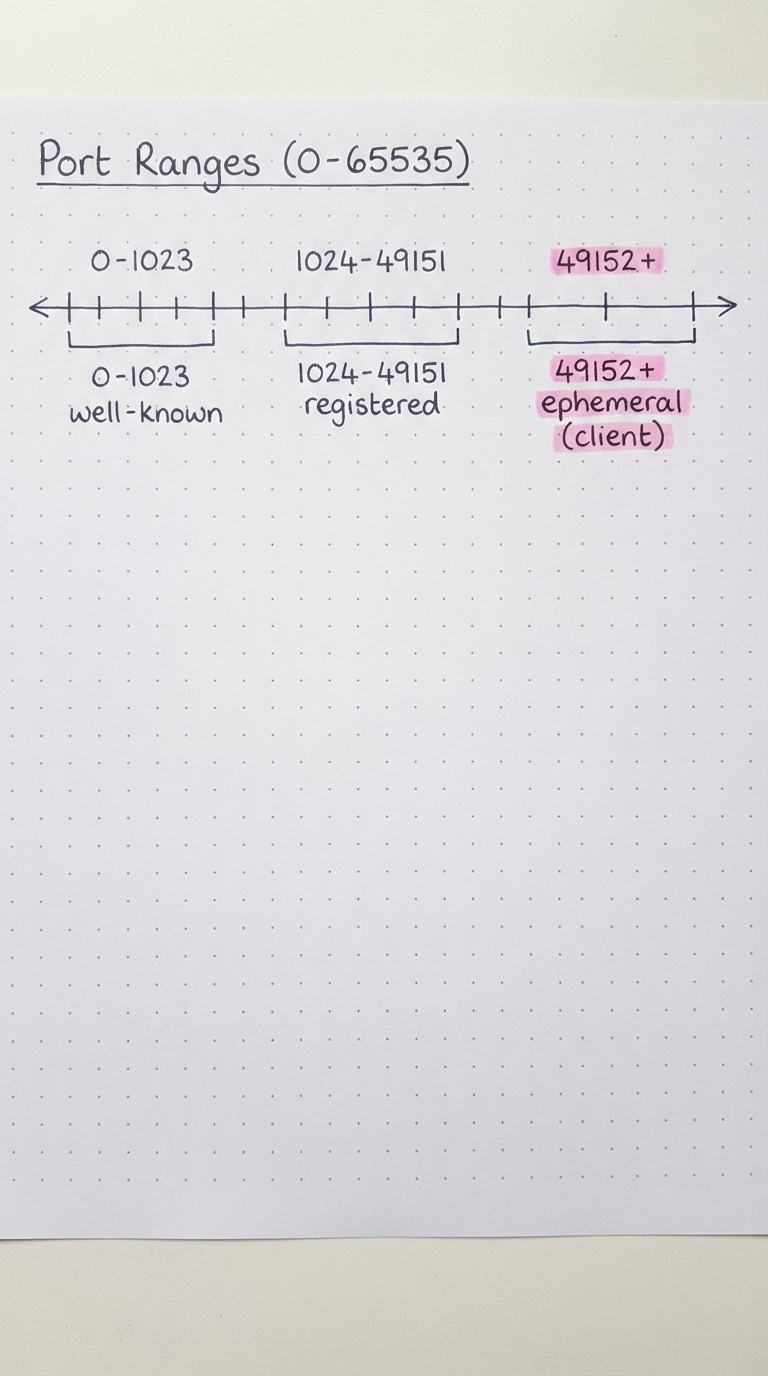 Port Ranges (0-65535)
0-1023
1024-49151
49152+
0-1023
well-known
1024-49151
registered
49152+
ephemeral
(client)